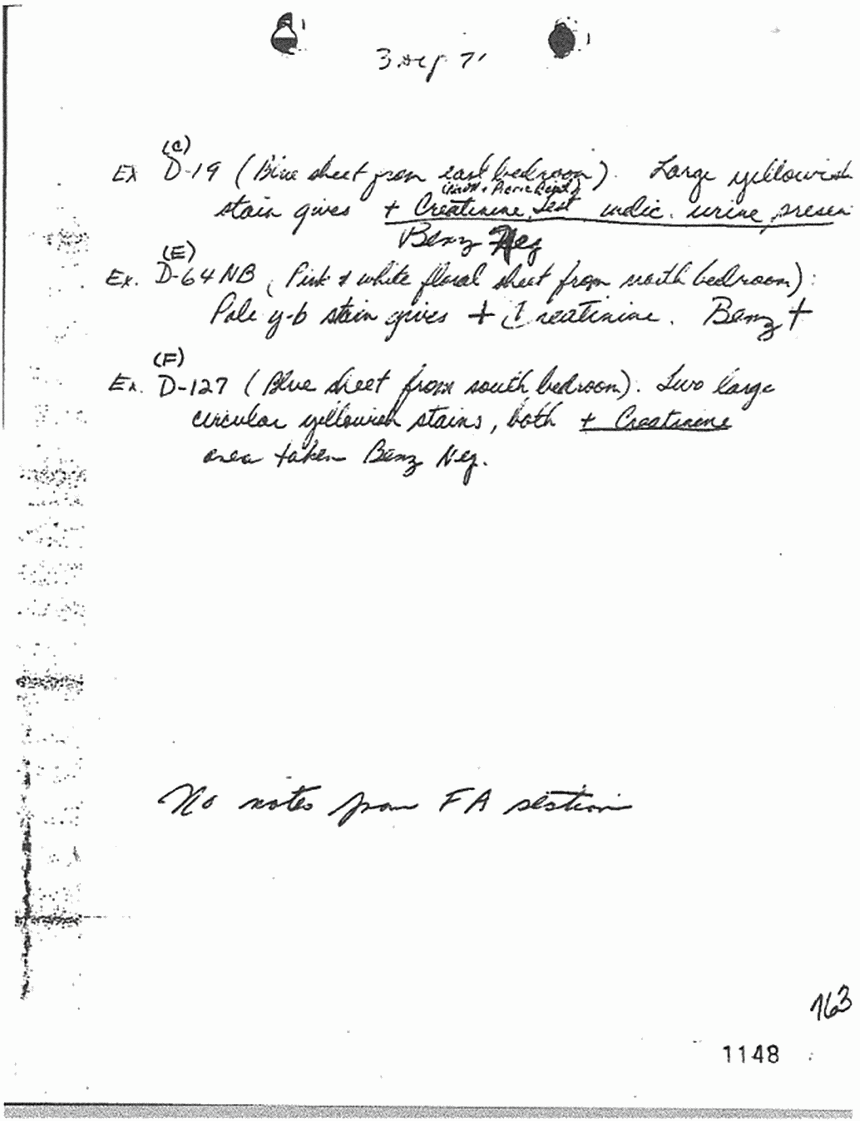 3 Sep 71
(C)
Ex D-19 (Blue sheet from east bedroom). Large yellowish
stain gives + Creatinine Test indic. urine presen
Benz Neg
(E)
Ex. D-64 NB (Pink & white floral sheet from north bedroom):
Pale y-b stain gives + Creatinine. Benz +
(F)
Ex. D-127 (Blue sheet from south bedroom). Two large
circular yellowish stains, both + Creatinine
area taken Benz Neg.
No notes from FA section
763
1148